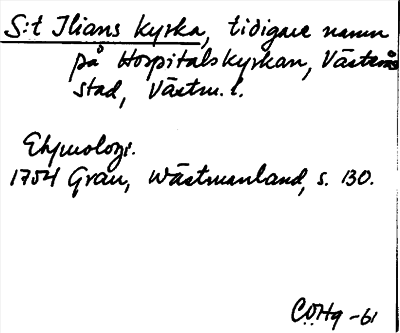 S:t Ilians kyrka, tidigare namn
på Hospitalskyrkan, Västerås
stad, Västm. l.
Etymologi.
1754 Grau, Wästmanland, s. 130.
COHg -61